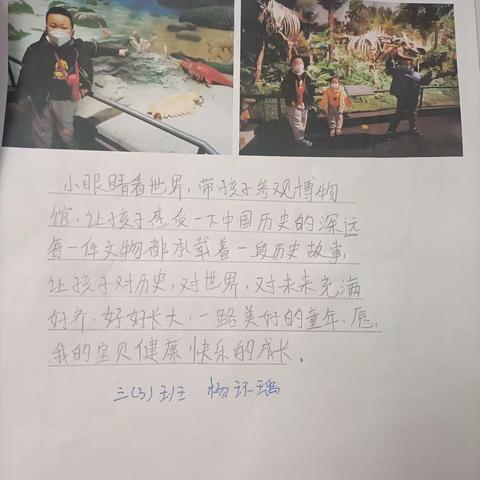 小眼睛看世界，带孩子参观博物
馆，让孩子感受一下中国历史的深远
每一件文物都承载着一段历史故事，
让孩子对历史，对世界，对未来充满
好奇．好好长大，一路美好的童年．愿，
我的宝贝健康快乐的成长．
三（3）班 杨环瑶